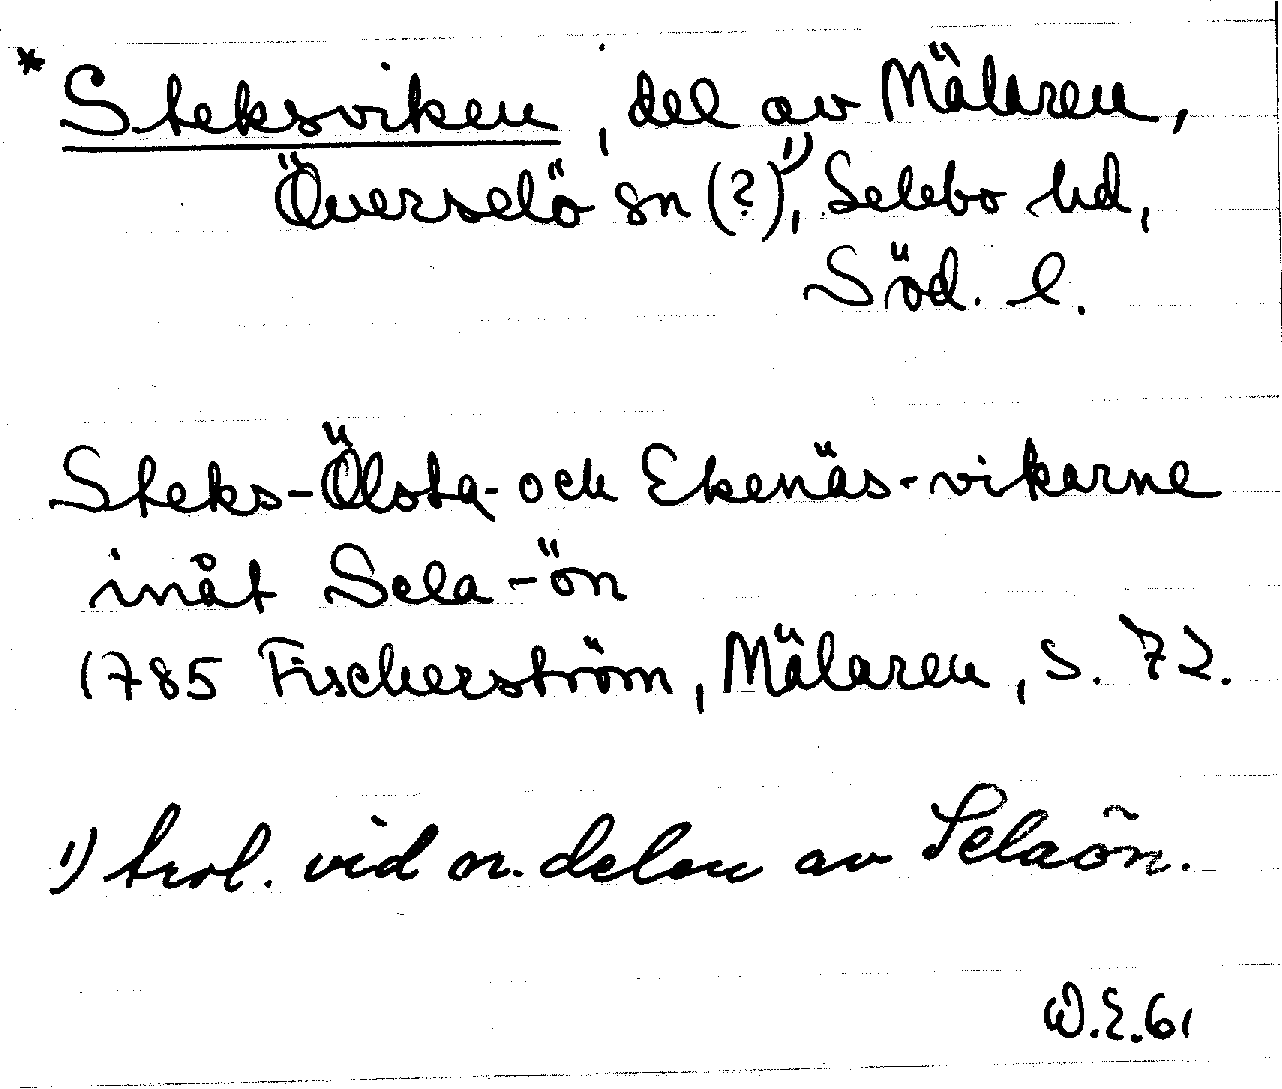 * Steksviken, del av Mälaren,
Överselö sn (?)¹⁾, Selebo hd,
Söd. l.
Steks-Ölsta- och Ekenäs-vikarne
inåt Sela-ön
1785 Fischerström, Mälaren, s. 72.
1) trol. vid n. delen av Selaön.
W.E. 61